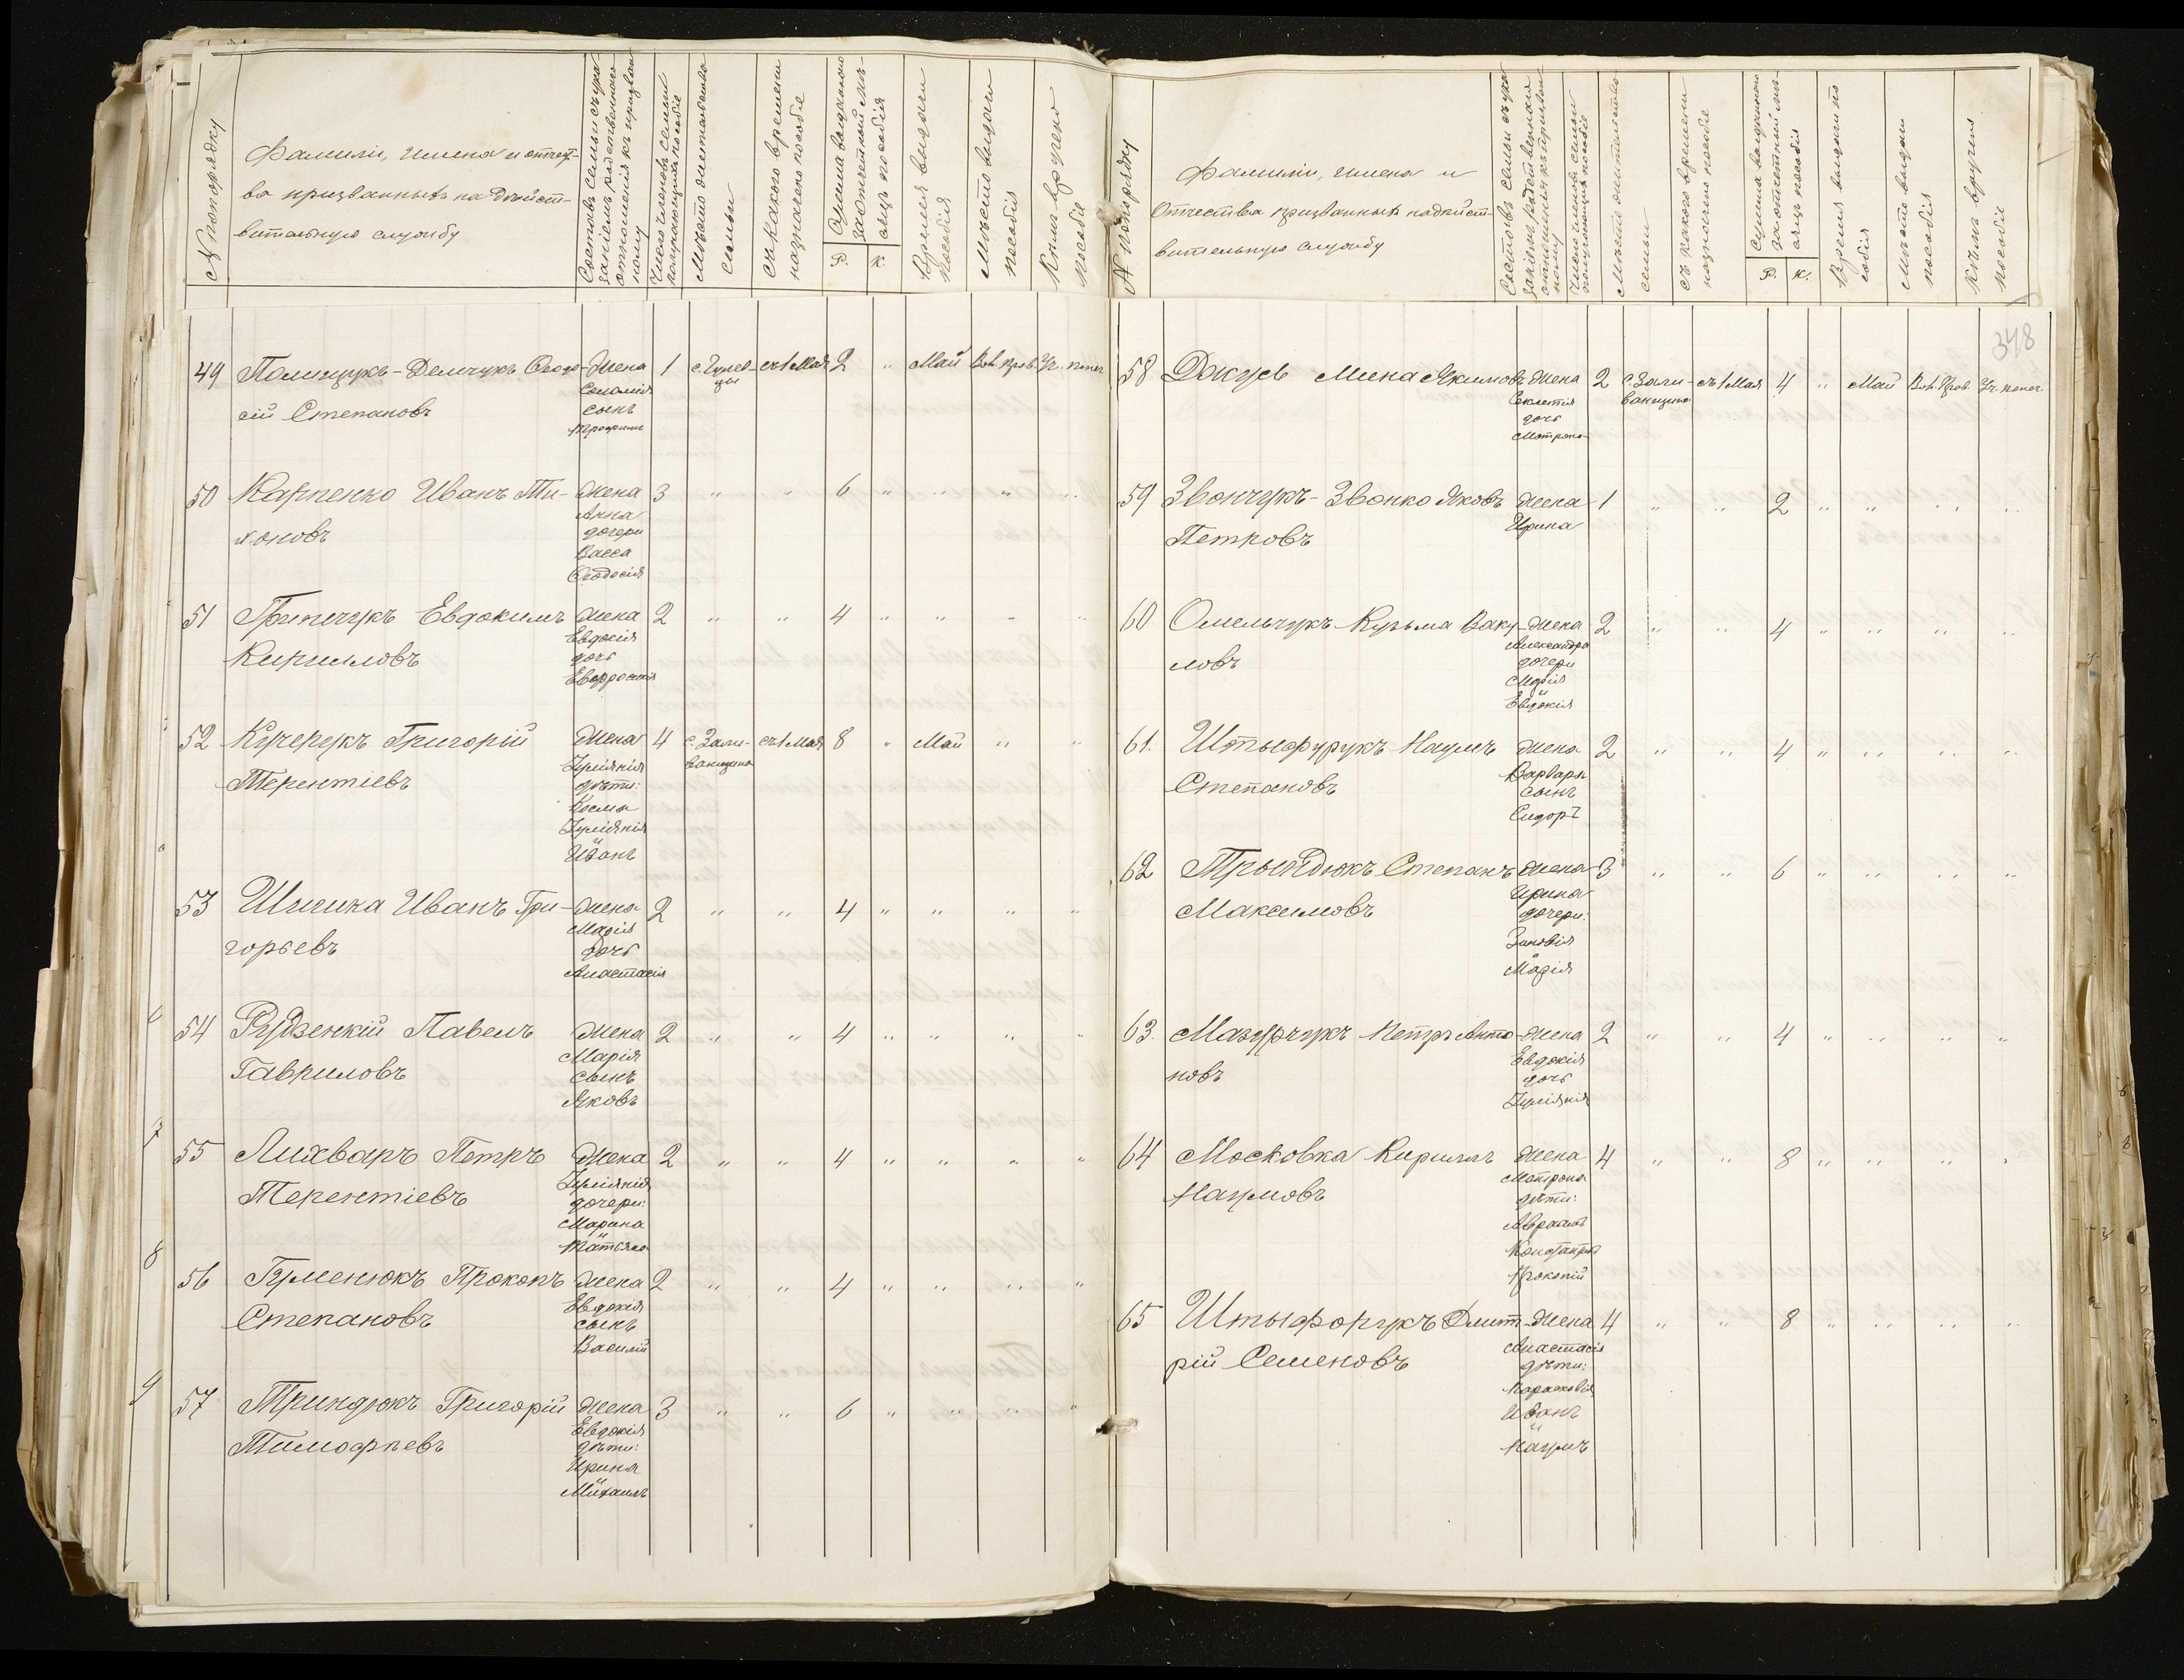 № по порядку
Фамилии, имена и отчест-
ва призванныхъ на дѣйст-
вительную службу
Составъ семьи съ ука
заніемъ родственнаго
отношенія къ призван
ному
Число членовъ семьи
получающихъ пособіе
Мѣсто жительства
семьи
Съ какого времени
назначено пособіе
Сумма выданнаго
за отчетный мѣ-
сяцъ пособія
Р. К.
Время выдачи
пособія
Мѣсто выдачи
пособія
Кѣмъ вручено
пособіе
49 Полищукъ-Демчукъ Ѳеодо- жена 1 съ 1 Мая 2 " Май Вол. прав. Уч. попеч
Соломія
сій Степановъ сынъ
50 Карпенко Иванъ Ти- жена 3 " " 6 " " " "
Анна
хоновъ дочери
Васса
Ѳеодосія
51 Грипчукъ Евдокимъ жена 2 " " 4 " " " "
Евдокія
Кирилловъ дочь
Евфросинія
52 Кучерукъ Григорій жена 4 с. Зали- съ 1 Мая 8 " Май " "
Іуліянія ванщина
Терентіевъ дѣти:
Косма
Іуліянія
и
Иванъ
53 Шишка Иванъ Гри- жена 2 " " 4 " " " "
Марія
горьевъ дочь
Анастасія
54 Рудзенкій Павелъ жена 2 " " 4 " " " "
Марія
Гавриловъ сынъ
Яковъ
7
55 Лихваръ Петръ жена 2 " " 4 " " " "
Іуліянія
Терентіевъ дочери:
Марина
и
Татьяна
8
56 Гуменюкъ Прокопъ жена 2 " " 4 " " " "
Евдокія
Степановъ сынъ
Василій
9
57 Триндюкъ Григорій жена 3 " " 6 " " " "
Евдокія
Тимофѣевъ дѣти:
Ирина
и
Михаилъ
№ по порядку
Фамиліи, имена и
Отчества призванныхъ на дѣйст-
вительную службу
Составъ семьи съ ука
заніемъ родственнаго
отношенія къ призван
ному
Число членовъ семьи
получающихъ пособіе
Мѣсто жительства
семьи
Съ какого времени
назначено пособіе
Сумма выданнаго
за отчетный мѣ-
сяцъ пособія
Р. К.
Время выдачи по
собія
Мѣсто выдачи
пособія
Кѣмъ вручено
пособіе
348
58 Докусь Мина Якимовъ жена 2 с. Зали- съ 1 Мая 4 " Май Вол. Прав. Уч. попеч.
Секлетія ванщина
дочь
Мотрона
59 Звончукъ-Звонко Яковъ жена 1 " " 2 " " " "
Ирина
Петровъ
60 Омельчукъ Кузьма Ваку- жена 2 " " 4 " " " "
Александра
ловъ дочери
Марія
и
Евдокія
61. Штыфурукъ Наумъ жена 2 " " 4 " " " "
Варвара
Степановъ сынъ
Сидоръ
62 Трындюкъ Степанъ жена 3 " " 6 " " " "
Ирина
Максимовъ дочери:
Зиновія
и
Марія
63. Мазурчукъ Петръ Анто- жена 2 " " 4 " " " "
Евдокія
новъ дочь
Іуліянія
64 Московка Кириллъ жена 4 " " 8 " " " "
Матрона
Наумовъ дѣти:
Авраамъ
Константинъ
Прокопій
65 Штыфорукъ Дмит- жена 4 " " 8 " " " "
Анастасія
рій Семеновъ дѣти:
Параскевія
Иванъ
и
Наумъ